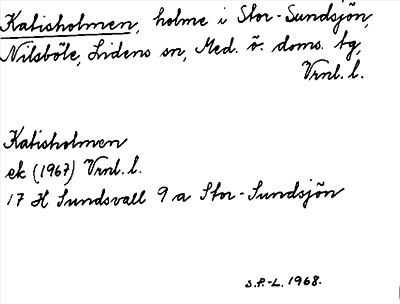 Katisholmen, holme i Stor-Sundsjön,
Nilsböle, Lidens sn, Med. ö. doms. tg,
Vrnl. l.
Katisholmen
ek (1967) Vrnl. l.
17 H Sundsvall 9 a Stor-Sundsjön
S.P.-L. 1968.